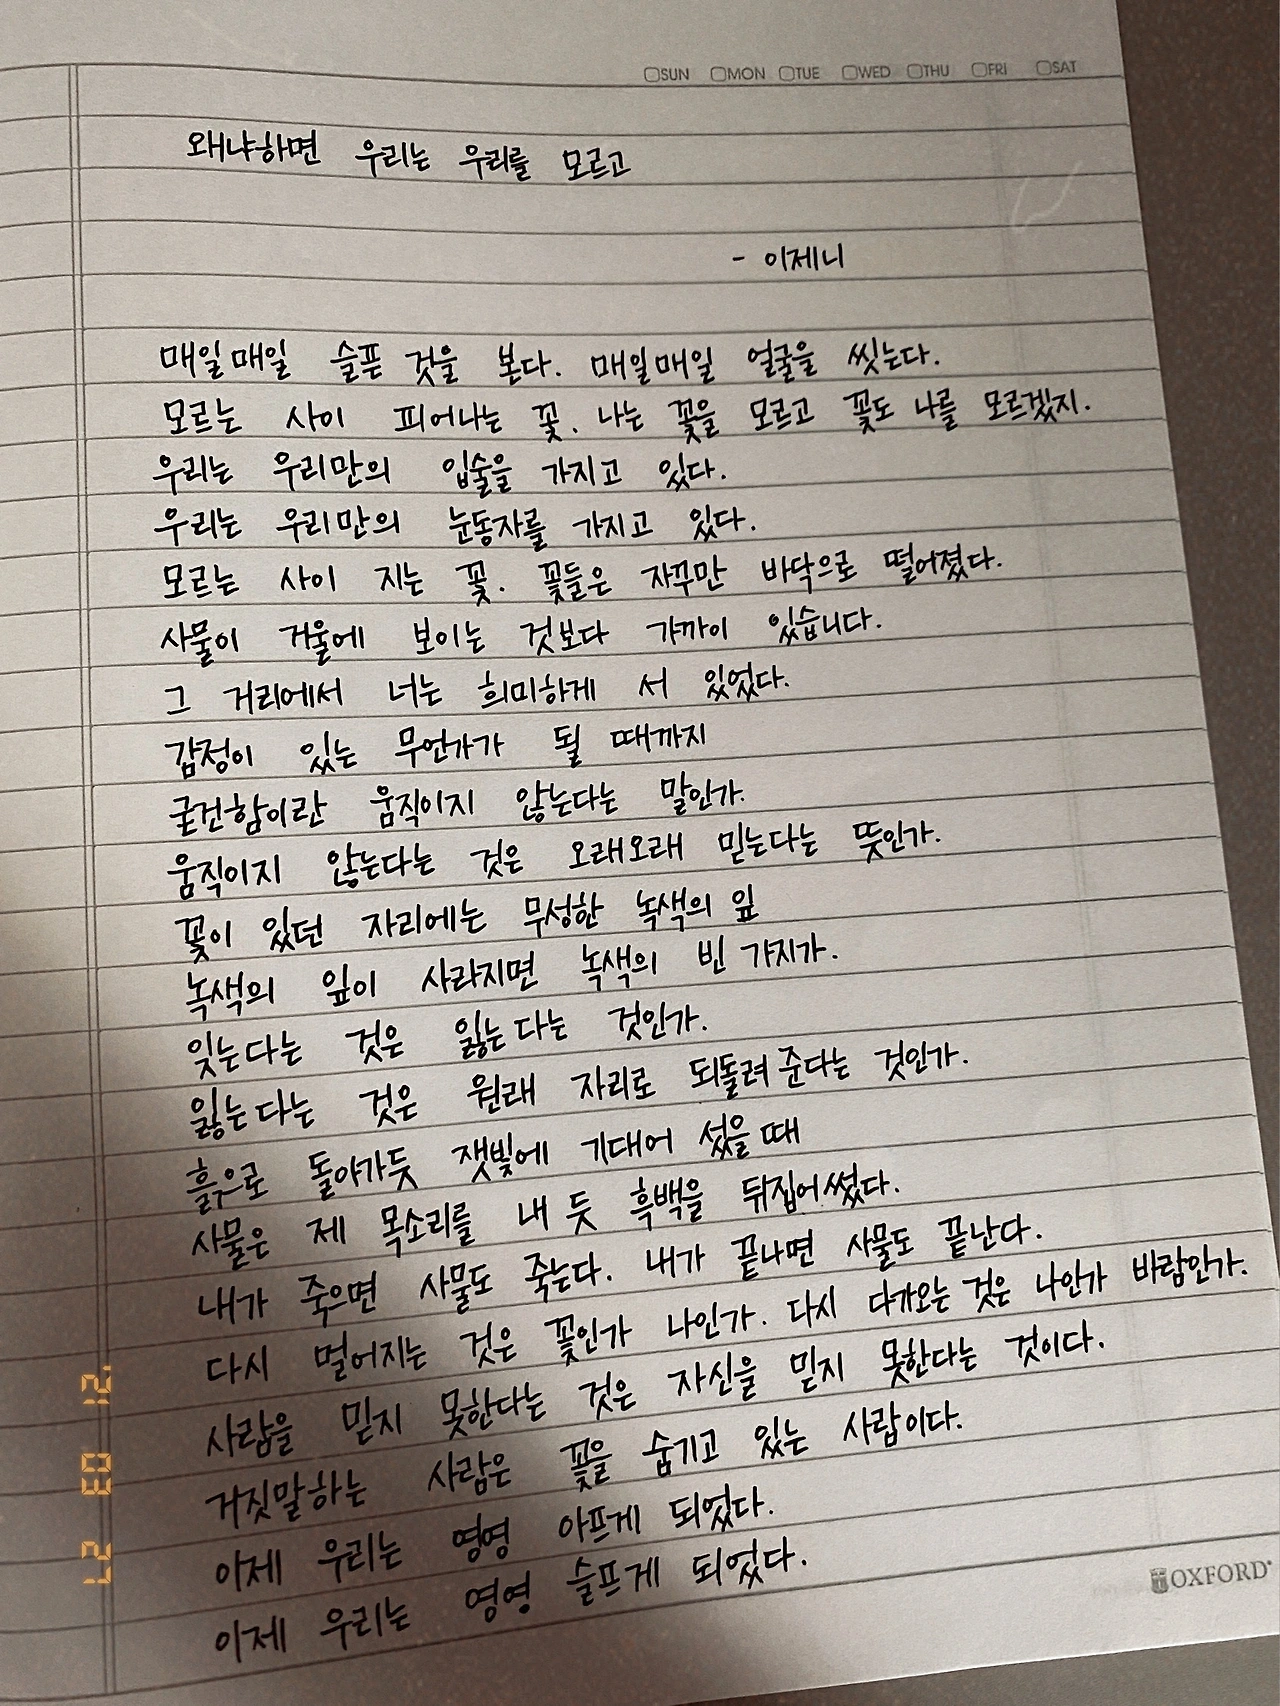 SUN MON TUE WED THU FRI SAT
왜냐하면 우리는 우리를 모르고
- 이제니
매일매일 슬픈 것을 본다. 매일매일 얼굴을 씻는다.
모르는 사이 피어나는 꽃. 나는 꽃을 모르고 꽃도 나를 모르겠지.
우리는 우리만의 입술을 가지고 있다.
우리는 우리만의 눈동자를 가지고 있다.
모르는 사이 지는 꽃. 꽃들은 자꾸만 바닥으로 떨어졌다.
사물이 거울에 보이는 것보다 가까이 있습니다.
그 거리에서 너는 희미하게 서 있었다.
감정이 있는 무언가가 될 때까지
굳건함이란 움직이지 않는다는 말인가.
움직이지 않는다는 것은 오래오래 믿는다는 뜻인가.
꽃이 있던 자리에는 무성한 녹색의 잎
녹색의 잎이 사라지면 녹색의 빈 가지가.
잊는다는 것은 잃는다는 것인가.
잃는다는 것은 원래 자리로 되돌려준다는 것인가.
흙으로 돌아가듯 잿빛에 기대어 섰을 때
사물은 제 목소리를 내듯 흑백을 뒤집어썼다.
내가 죽으면 사물도 죽는다. 내가 끝나면 사물도 끝난다.
다시 멀어지는 것은 꽃인가 나인가. 다시 다가오는 것은 나인가 바람인가.
사람을 믿지 못한다는 것은 자신을 믿지 못한다는 것이다.
거짓말하는 사람은 꽃을 숨기고 있는 사람이다.
이제 우리는 영영 아프게 되었다.
이제 우리는 영영 슬프게 되었다.
OXFORD
27 03 '21